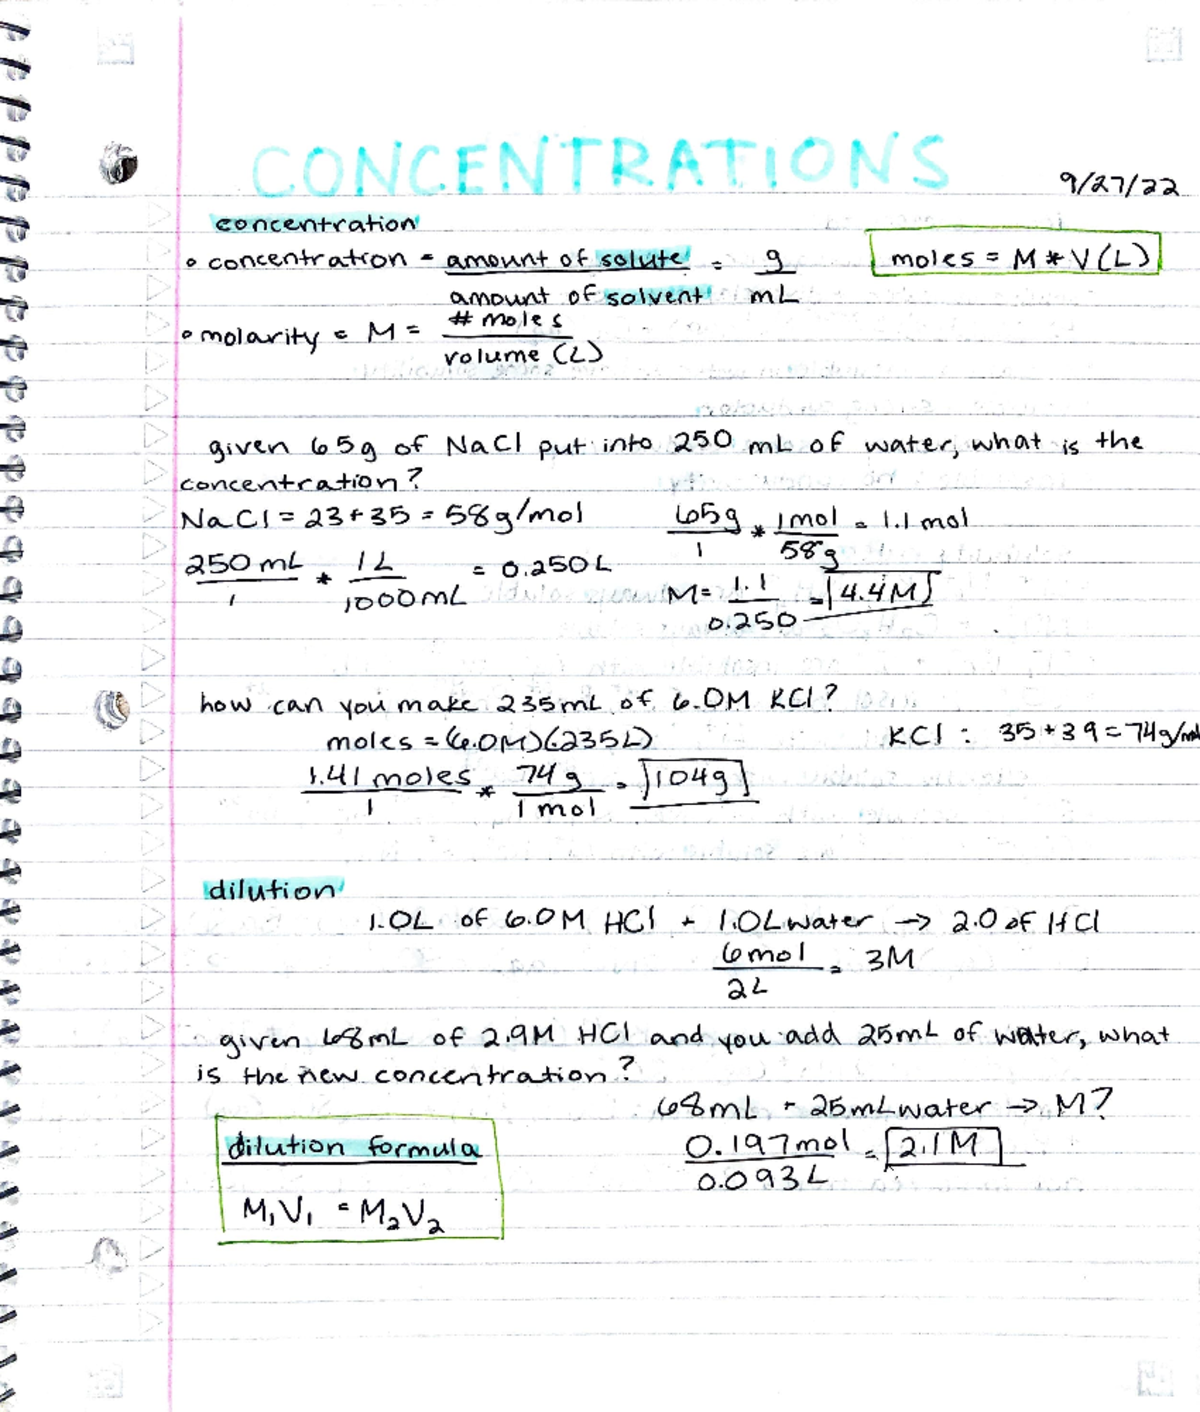 CONCENTRATIONS
9/27/22
concentration
• concentration = amount of solute / amount of solvent = g / mL
moles = M * V(L)
• molarity = M = # moles / volume (L)
given 65g of NaCl put into 250 mL of water, what is the
concentration?
NaCl = 23+35 = 58g/mol
65g / 1 * 1mol / 58g = 1.1 mol
250 mL / 1 * 1L / 1000mL = 0.250L
M = 1.1 / 0.250 = 4.4M
how can you make 235mL of 6.0M KCl?
moles = (6.0M)(.235L)
KCl : 35+39=74g/mol
1.41 moles / 1 * 74g / 1mol = 104g
dilution
1.0L of 6.0M HCl + 1.0L water → 2.0 of HCl
6mol / 2L = 3M
given 68mL of 2.9M HCl and you add 25mL of water, what
is the new concentration?
68mL + 25mL water → M?
0.197mol / 0.093L = 2.1M
dilution formula
M₁V₁ = M₂V₂